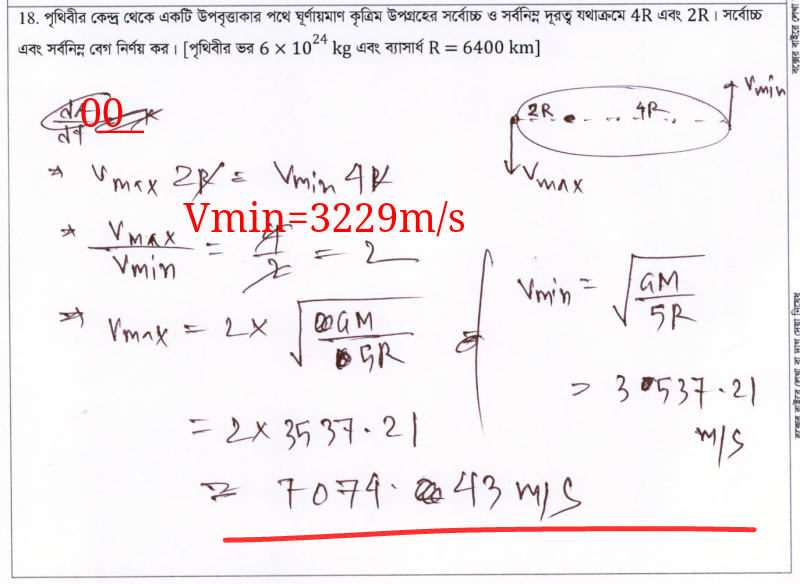 18. পৃথিবীর কেন্দ্র থেকে একটি উপবৃত্তাকার পথে ঘূর্ণায়মাণ কৃত্রিম উপগ্রহের সর্বোচ্চ ও সর্বনিম্ন দূরত্ব যথাক্রমে 4R এবং 2R। সর্বোচ্চ
এবং সর্বনিম্ন বেগ নির্ণয় কর। [পৃথিবীর ভর 6 × 10²⁴ kg এবং ব্যাসার্ধ R = 6400 km]
Vmin
2R 4R
Vmax
00
⇒ Vmax 2R = Vmin 4R
Vmin=3229m/s
⇒ Vmax/Vmin = 4/2 = 2
⇒ Vmax = 2 × √(GM/5R)
= 2 × 3537.21
= 7074.43 m/s
Vmin = √(GM/5R)
= 3537.21
m/s